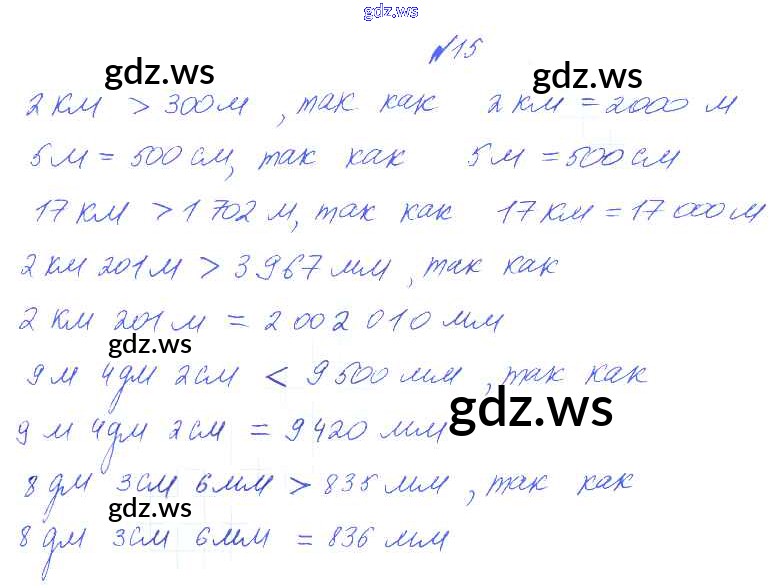 gdz.ws
№15
gdz.ws gdz.ws
2 км > 300 м, так как 2 км = 2000 м
5 м = 500 см, так как 5 м = 500 см
17 км > 1 702 м, так как 17 км = 17 000 м
2 км 201 м > 3 967 мм, так как
2 км 201 м = 2 002 010 мм
gdz.ws
9 м 4 дм 2 см < 9 500 мм, так как
gdz.ws
9 м 4 дм 2 см = 9 420 мм
8 дм 3 см 6 мм > 835 мм, так как
gdz.ws
8 дм 3 см 6 мм = 836 мм